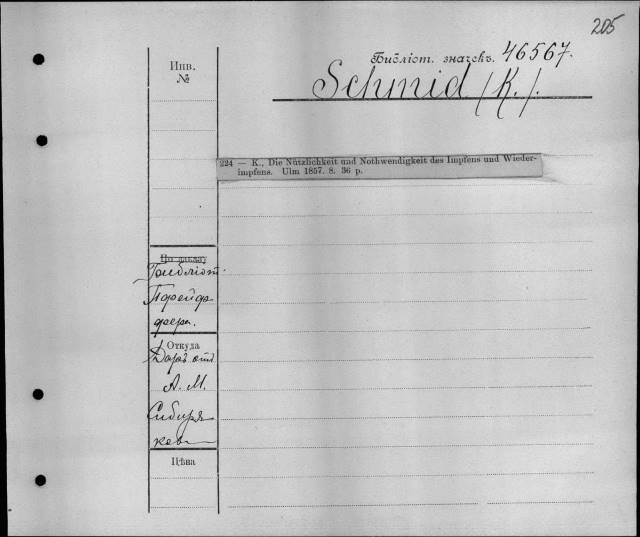 205
Библіот. значекъ. 46567.
Инв.
№
Schmid (K.).
224 — K., Die Nützlichkeit und Nothwendigkeit des Impfens und Wieder-
impfens. Ulm 1857. 8. 36 p.
По заказу
Библіот.
Пфейф
фера.
Откуда
Даръ отъ
А. М.
Сибиря
кова
Цѣна